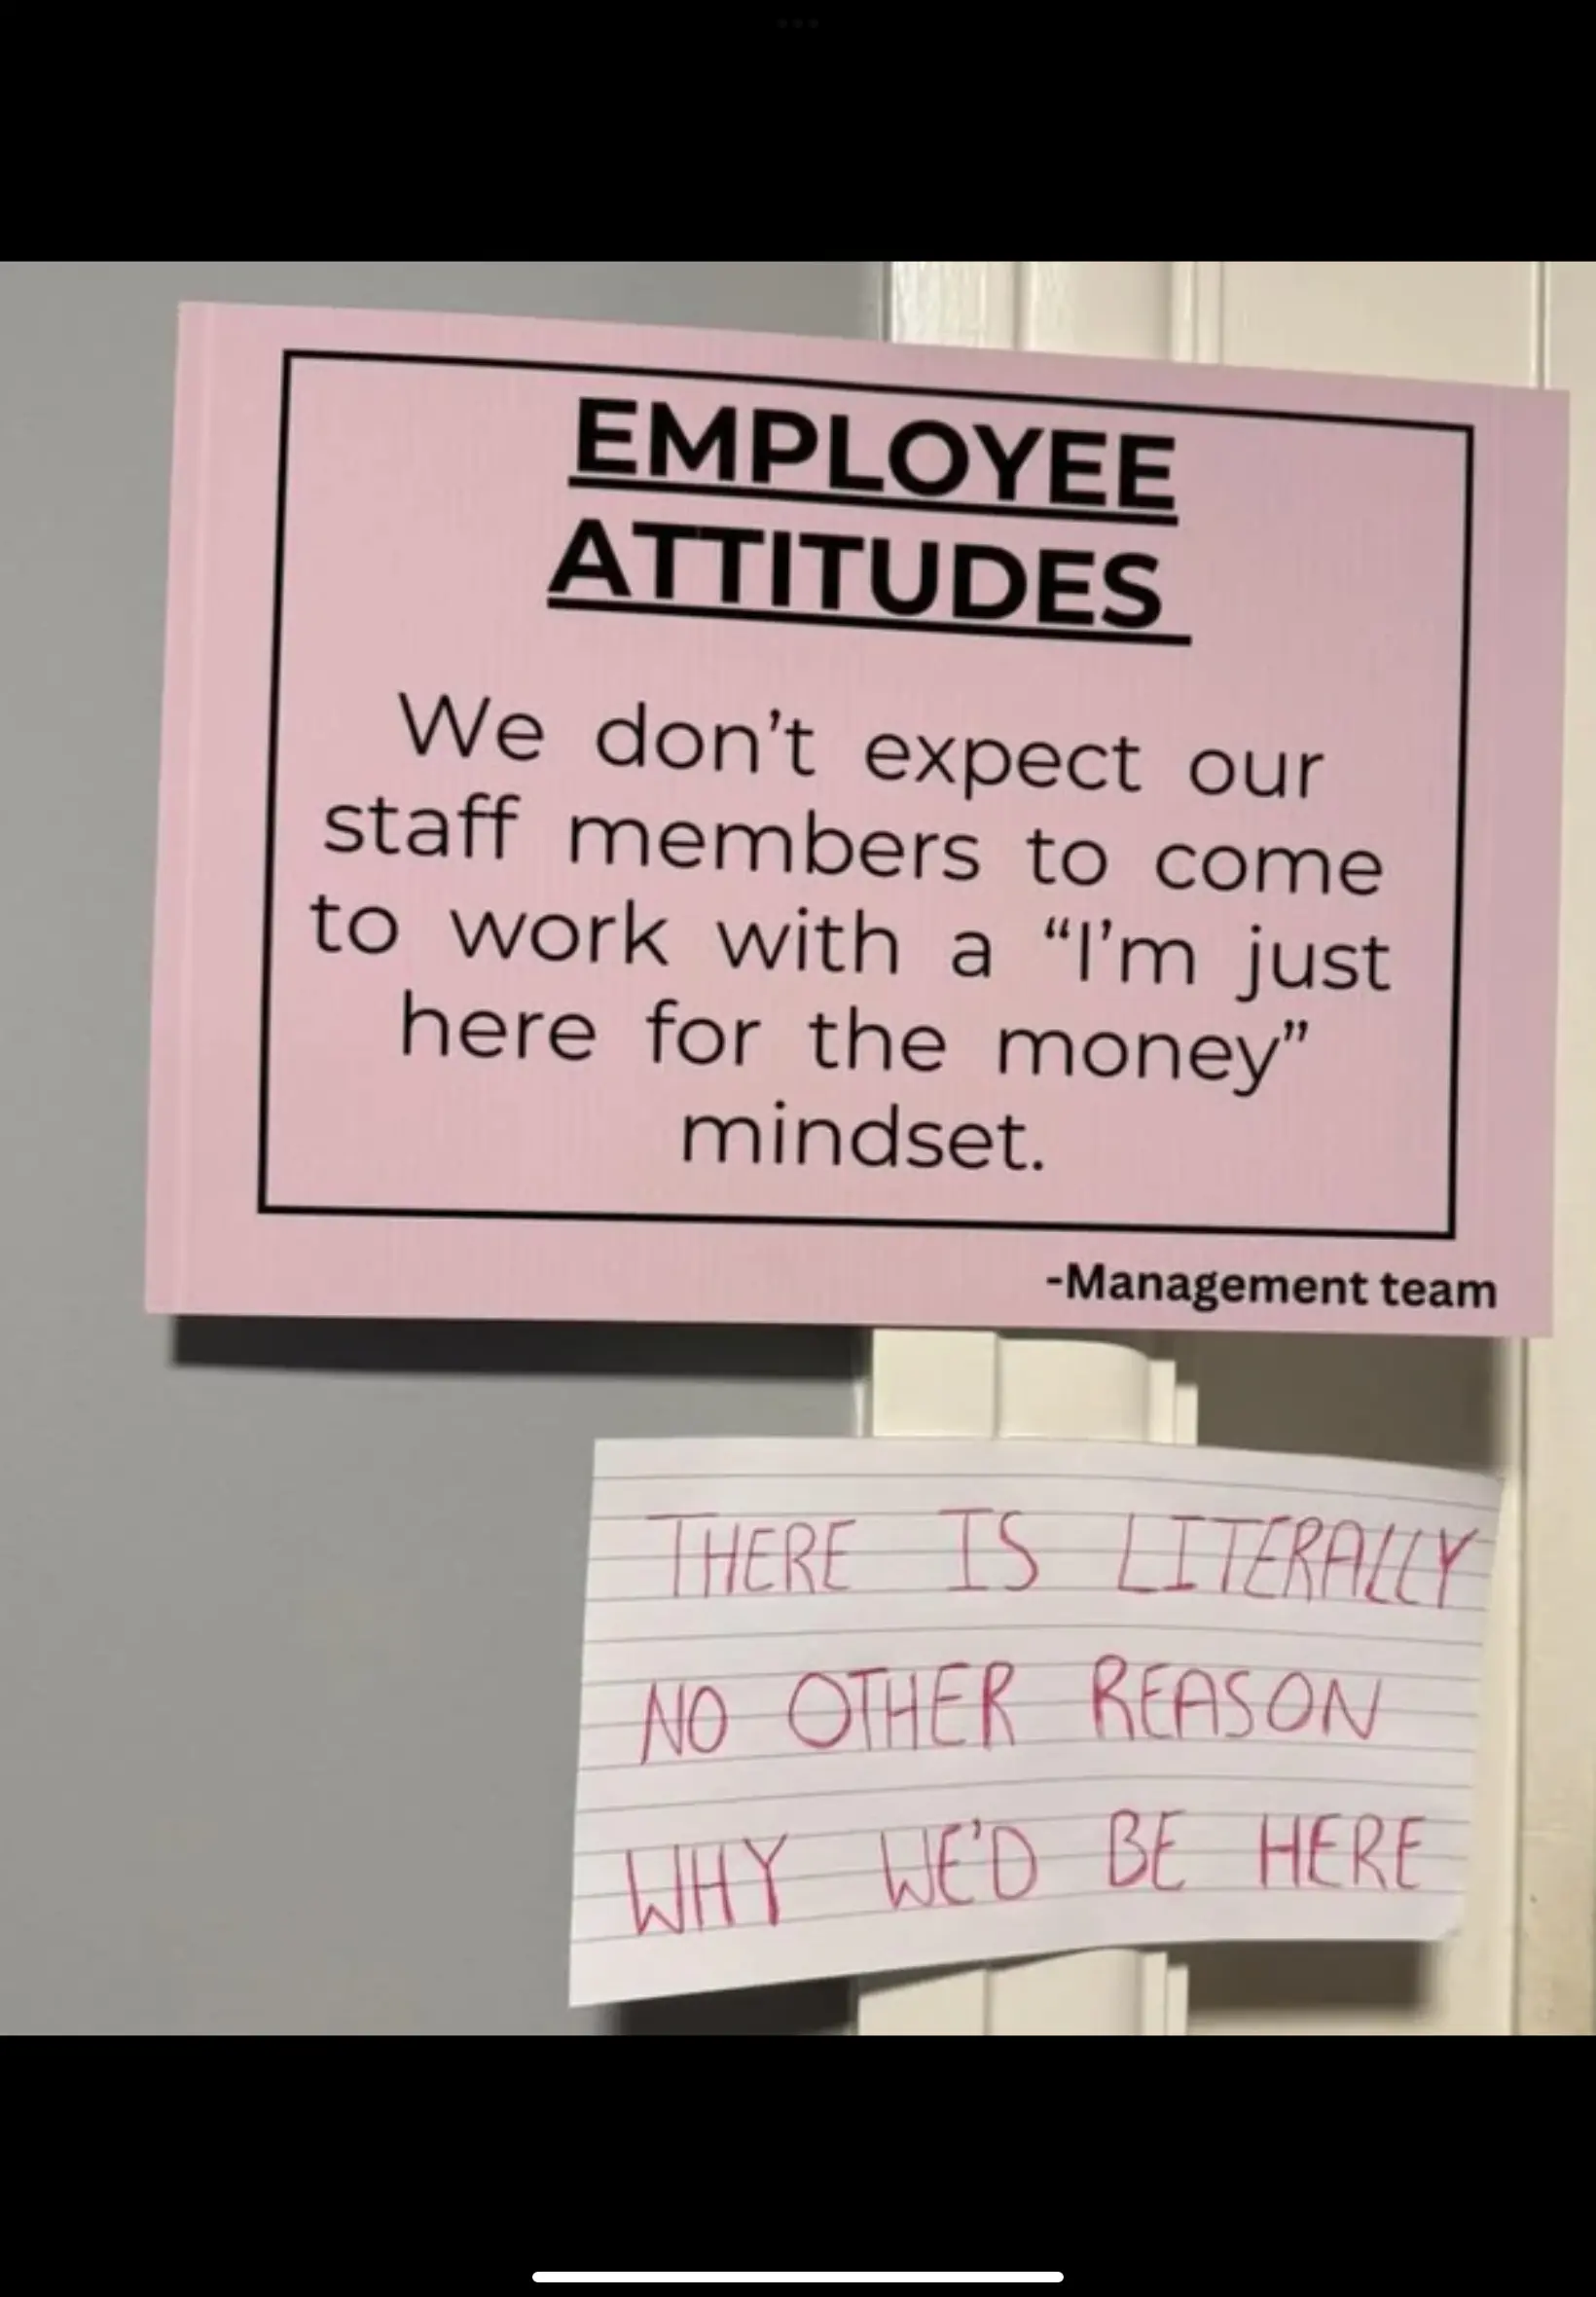 EMPLOYEE
ATTITUDES
We don't expect our
staff members to come
to work with a "I'm just
here for the money"
mindset.
-Management team
THERE IS LITERALLY
NO OTHER REASON
WHY WE'D BE HERE